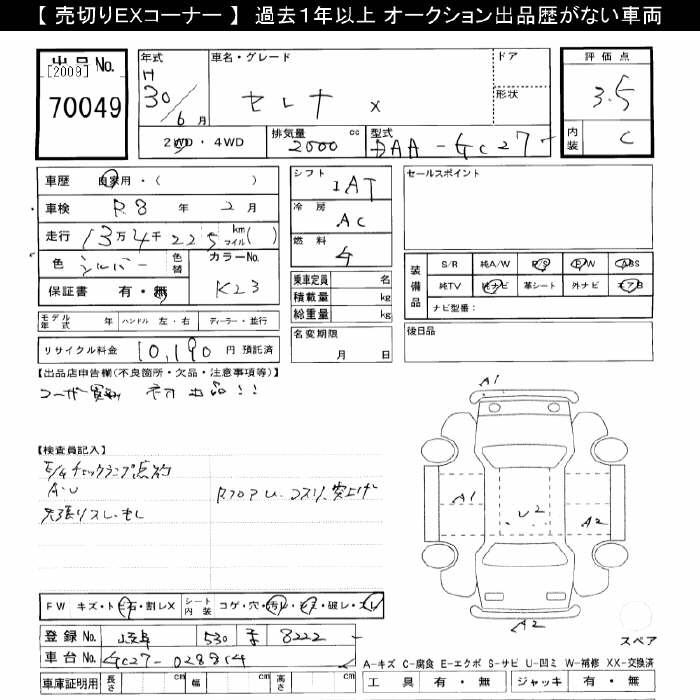 【 売切りEXコーナー 】 過去１年以上 オークション出品歴がない車両
出品 No.
[2009]
70049
年式
H
30/6月
車名・グレード
セレナ x
ドア
形状
2WD・4WD
排気量 cc
2000
型式
DAA-GC27
評価点
3.5
内装
C
車歴 自家用・( )
車検 R8 年 2月
走行 13万4千225 km マイル( )
色 シルバー
色替
カラーNo.
K23
保証書 有・無
モデル年式 年 ハンドル 左・右 ディーラー・並行
リサイクル料金 10,190 円 預託済
シフト
IAT
冷房
AC
燃料
乗車定員 名
積載量 kg
総重量 kg
名変期限
月 日
セールスポイント
装備品
S/R 純A/W P/S P/W ABS
純TV 純ナビ 革シート 外ナビ エアB
ナビ型番：
後日品
【出品店申告欄(不良箇所・欠品・注意事項等)】
ユーザー買取 初出品！！
【検査員記入】
E/gチェックランプ点灯
A・U
天張りスレ・もし
RフロアU、コスリ、突上げ
A1
A1
U2
A2
A2
スペア
FW キズ・トビ石・割レX
シート内装 コゲ・穴・汚レ・シミ・破レ・スレ
登録 No. 岐阜 530 す 8222
車台 No. GC27-028814
車庫証明用 長さ cm 幅 cm 高さ cm
A-キズ C-腐食 E-エクボ S-サビ U-凹ミ W-補修 XX-交換済
工具 有・無 ジャッキ 有・無